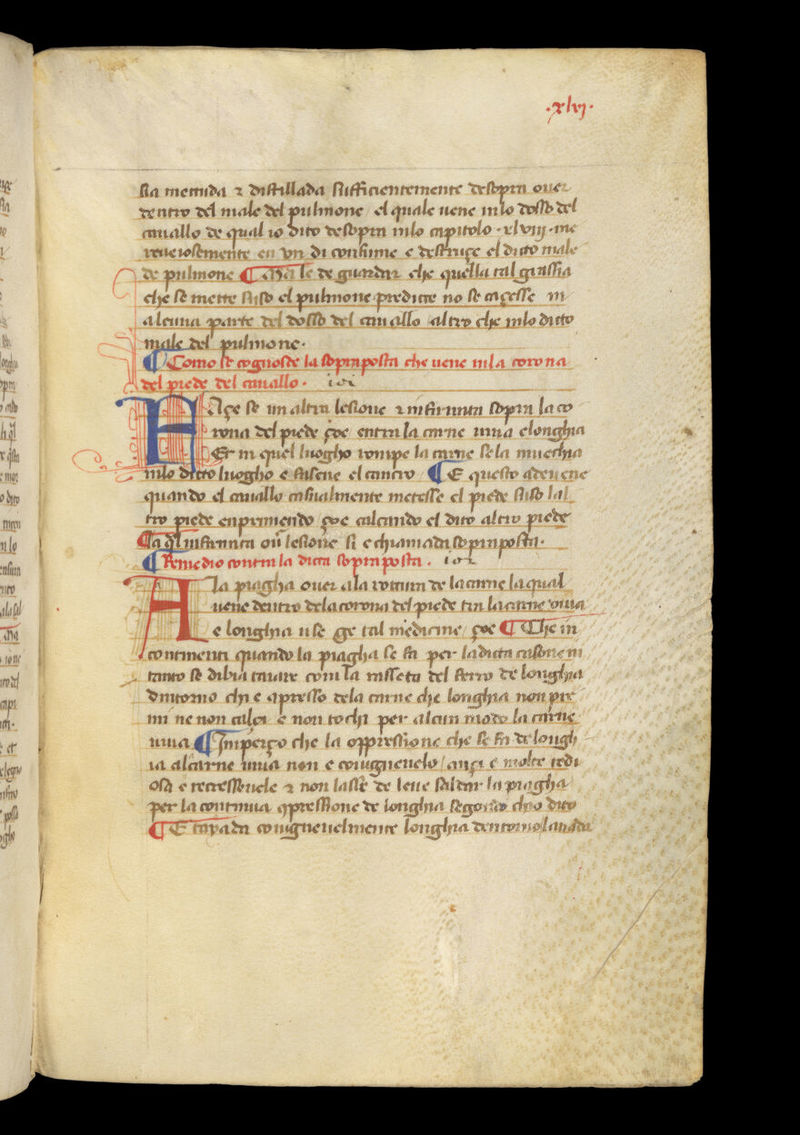 ·xlvj·
sia metuda ⁊ distillada sufficientemente desopra ouer
dentro del male del pulmone / el quale uene inlo dosso del
cauallo de qual io dito desopra inlo capitolo · xlviij · me
reueiosemente en vn di consume e destruçe el dicto male
de pulmone ¶ Ma le de guardar che quella tal grassia
che se mette suso el pulmone predicto no se caçesse in
alcuna parte del dosso del cauallo altro che inlo dicto
male del pulmone·
¶ Como se cognosce la sopraposta che uene in la corona
del piede del cauallo· 101
Façe se un altra lesione ⁊ infirmita sopra la co
rona del piede çoe entra la carne uiua e longhia
Et in quel luogho rompe la carne se la muechia
inlo dicto luogho e fasene el cancro ¶ E questo adeuene
quando el cauallo casualmente metesse el piede suso lal
tro piede enpremendo / çoe calcando el dito altro piede
La ql infirmita ouer lesione si e chiamada sopraposta·
¶ Remedio contra la dicta sopraposta · 102
A la piagha ouer ala rottura de la carne la qual
uene dentro dela corona del piede tra la carne uiua
e longhia use ge tal medicine / çoe ¶ Che in
continenti quando la piagha se fa per la dicta casone in
tanto se dibia tauare con la rosseta del ferro de longhia
dintorno chi e apresso dela carne che longhia non pre
mi ne non calçi e non tochi per alcun modo la carne
uiua ¶ Imperço che la oppressione che se fa de longh
ia alcarne uiua non e conigneuelo / ançi e molte tedi
osa e recresseuele ⁊ non lasse de leue saldar la piagha
per la continua opressione de longhia segondo cho dito
¶ E tayada conigneuelmente longhia dentorno la piagha